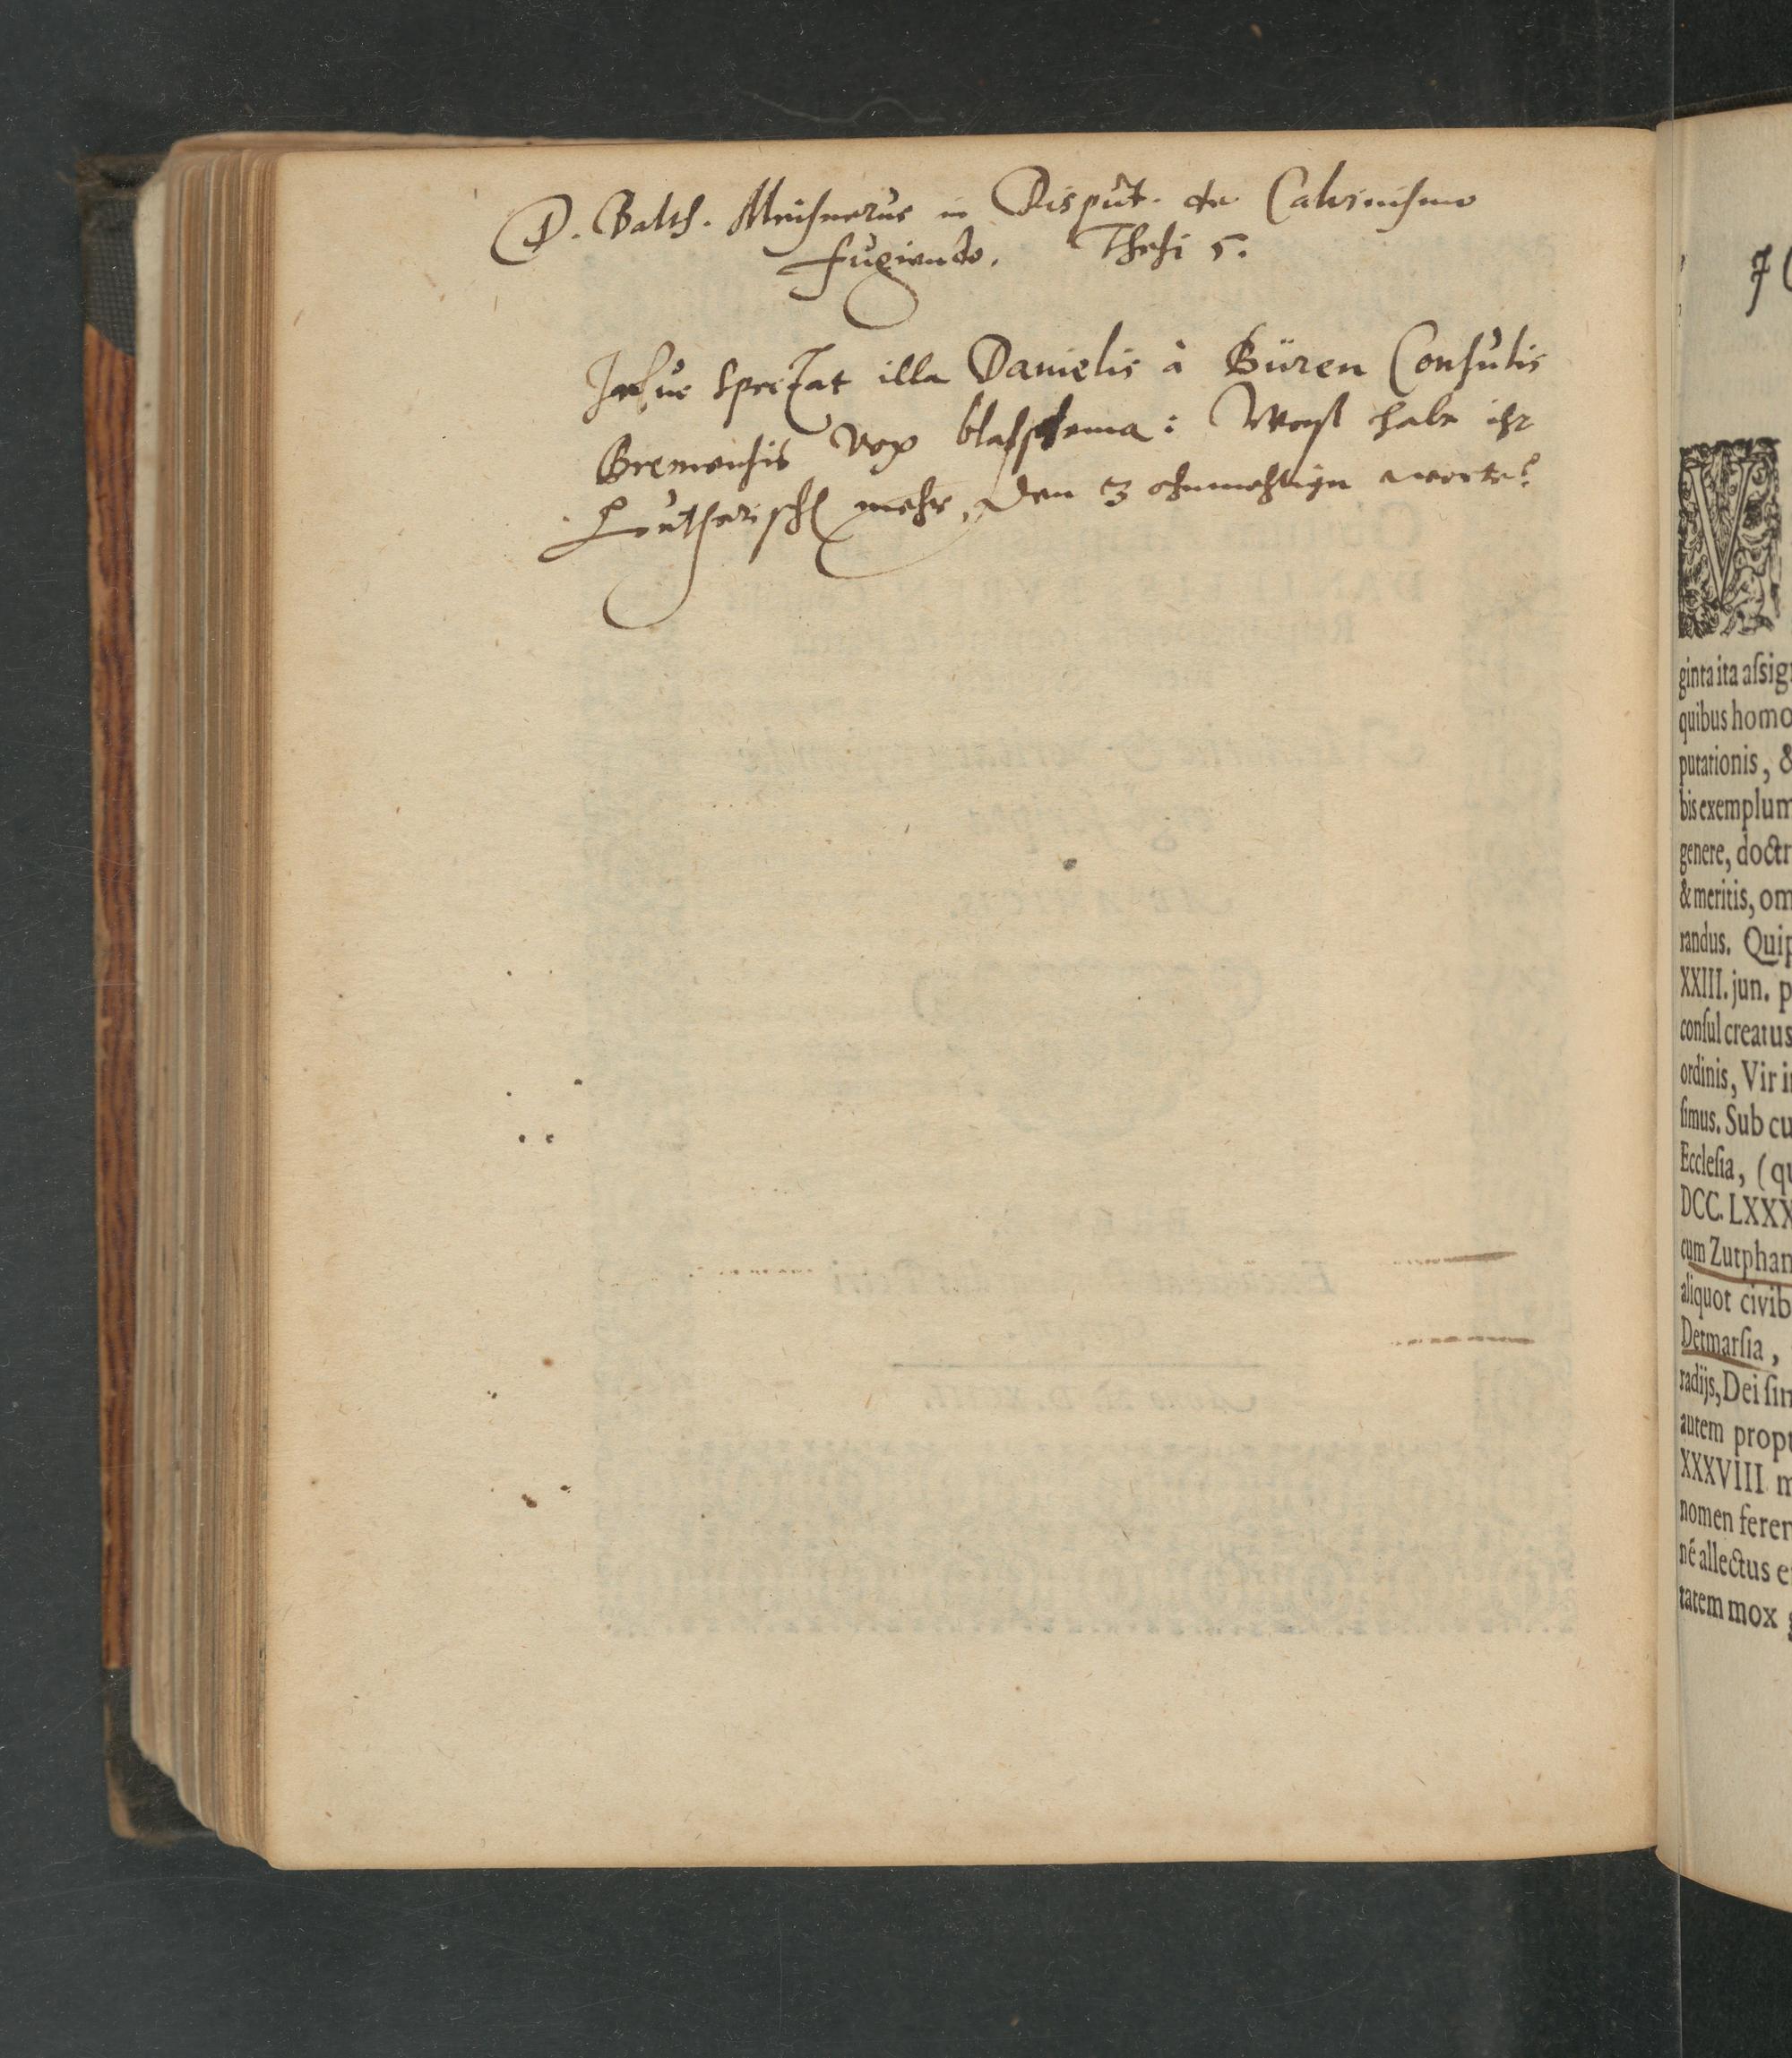 D. Balth. Meisnerus in Disput. de Calvinismo
fugiendo. Thesi 5.
spectat illa Danielis à Büren Consulis
Bremensis vox blasphema: Waß habt ihr
Lutherisch mehr, den 3 ohnmechtige worte?
V
ginta ita aſsig
quibus homo
putationis, &
bis exemplum
genere, doctr
& meritis, om
randus. Quip
XXIII. jun. p
conſul creatus
ordinis, Vir i
ſimus. Sub cu
Eccleſia, (qu
DCC. LXXX
cum Zutphan
aliquot civib
Detmarſia,
radijs, Dei ſin
autem propt
XXXVIII m
nomen feren
né allectus e
tatem mox